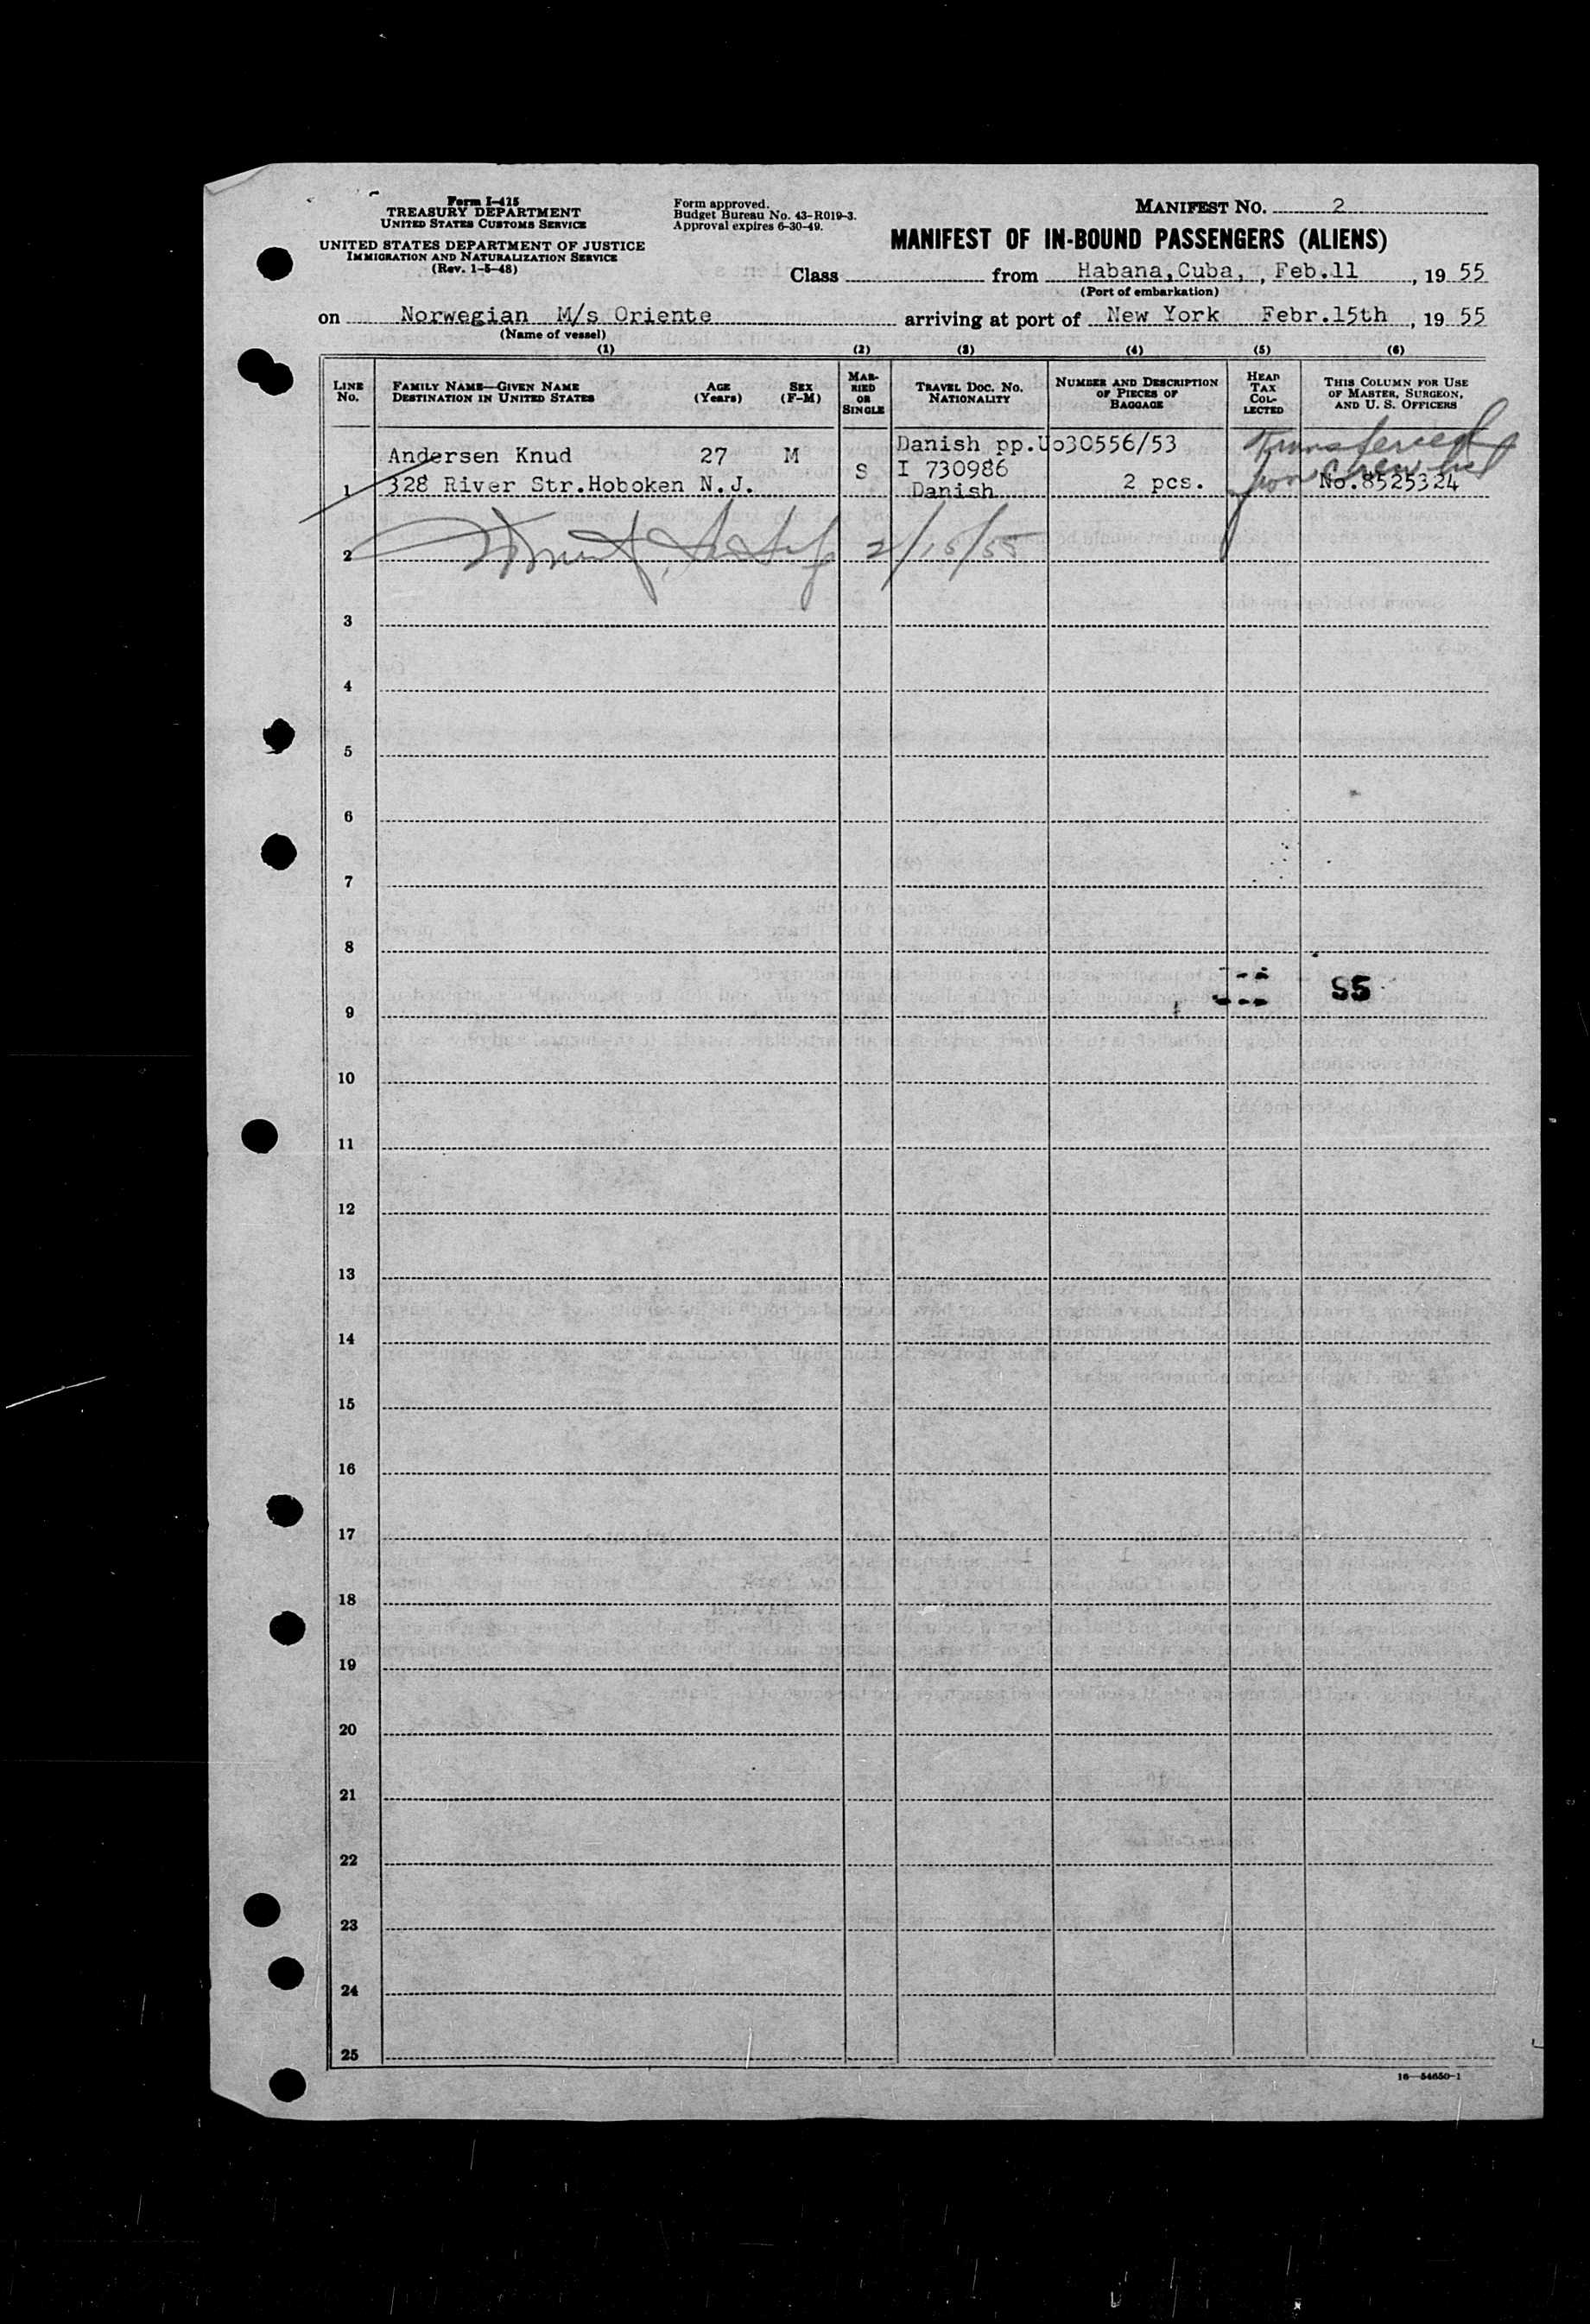 Form I-415
TREASURY DEPARTMENT
UNITED STATES CUSTOMS SERVICE
UNITED STATES DEPARTMENT OF JUSTICE
IMMIGRATION AND NATURALIZATION SERVICE
(Rev. 1-5-48)
Form approved.
Budget Bureau No. 43-R019-3.
Approval expires 6-30-49.
MANIFEST NO. 2
MANIFEST OF IN-BOUND PASSENGERS (ALIENS)
Class from Habana, Cuba, , Feb.11 , 19 55
(Port of embarkation)
on Norwegian M/s Oriente arriving at port of New York Febr.15th , 19 55
(Name of vessel)
(1) (2) (3) (4) (5) (6)
LINE No.
FAMILY NAME—GIVEN NAME AGE (Years) SEX (F-M)
DESTINATION IN UNITED STATES
MARRIED OR SINGLE
TRAVEL DOC. NO. NATIONALITY
NUMBER AND DESCRIPTION OF PIECES OF BAGGAGE
HEAD TAX COLLECTED
THIS COLUMN FOR USE OF MASTER, SURGEON, AND U. S. OFFICERS
Danish pp.Uo30556/53
Transferred
Andersen Knud 27 M
S I 730986
from Crew list
1 328 River Str.Hoboken N.J. Danish 2 pcs. No.8525324
2 2/15/55
3
4
5
6
7
8
55
9
10
11
12
13
14
15
16
17
18
19
20
21
22
23
24
25
16—54650-1